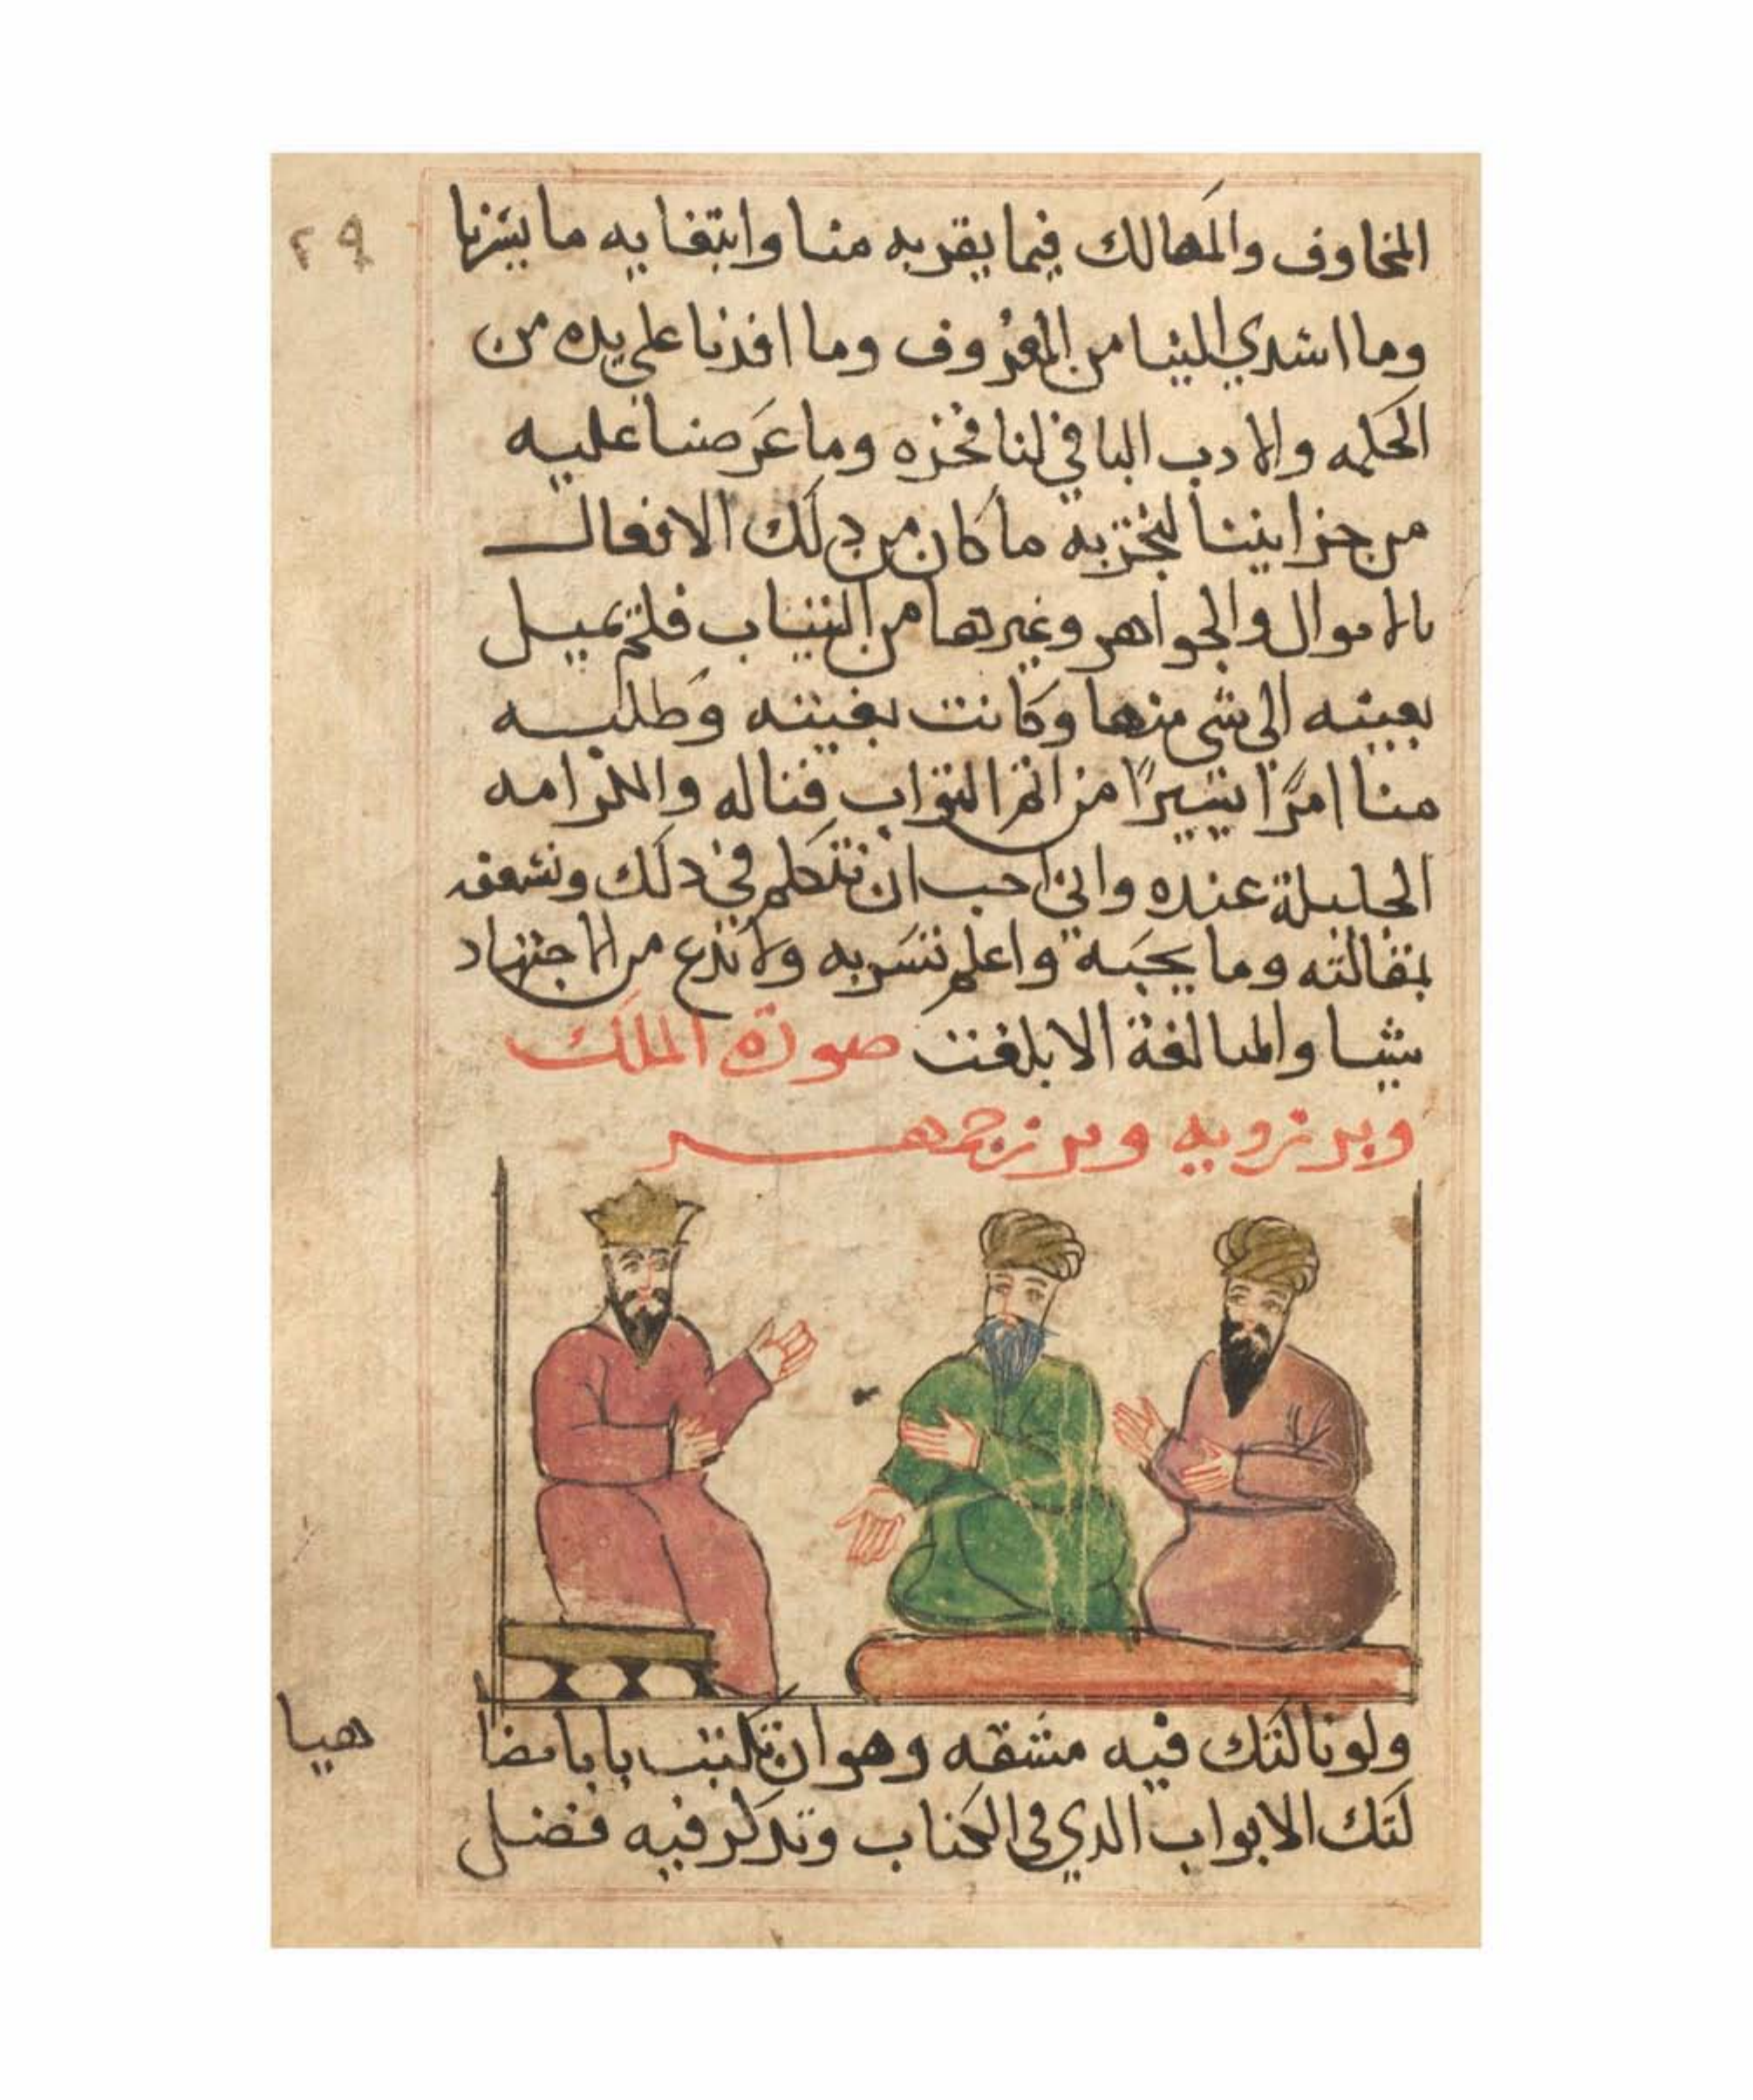 ٢٩
المخاوف والمهالك فيما يقربه منا وابتغايه ما يسرنا
وما اسدي الينا من المعروف وما افدنا علي يده من
الحكمه والادب الباقي لنا فخره وما عرضنا عليه
من خزايننا لنجزيه ما كان من دلك الافعال
بالاموال والجواهر وغيرها من الثياب فلم يميل
بعينه الي شي منها وكانت بغيته وطلبه
منا امرًا يسيرًا من اتم الثواب فناله والكرامه
الجليلة عنده واني احب ان تتكلم في دلك وتشعفه
بمقالته وما يحبه واعلم تسربه ولا تدع من الاجتهاد
شيا والمبالغة الا بلغت صورة الملك
وبرزويه وبرزجمهر
ولو نالتك فيه مشقه وهو ان تكتب بابا مضا
هيا
لتك الابواب الدي في الكتاب وتدكر فيه فضل